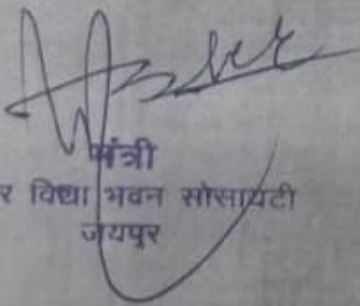 मंत्री
र विद्या भवन सोसायटी
जयपुर